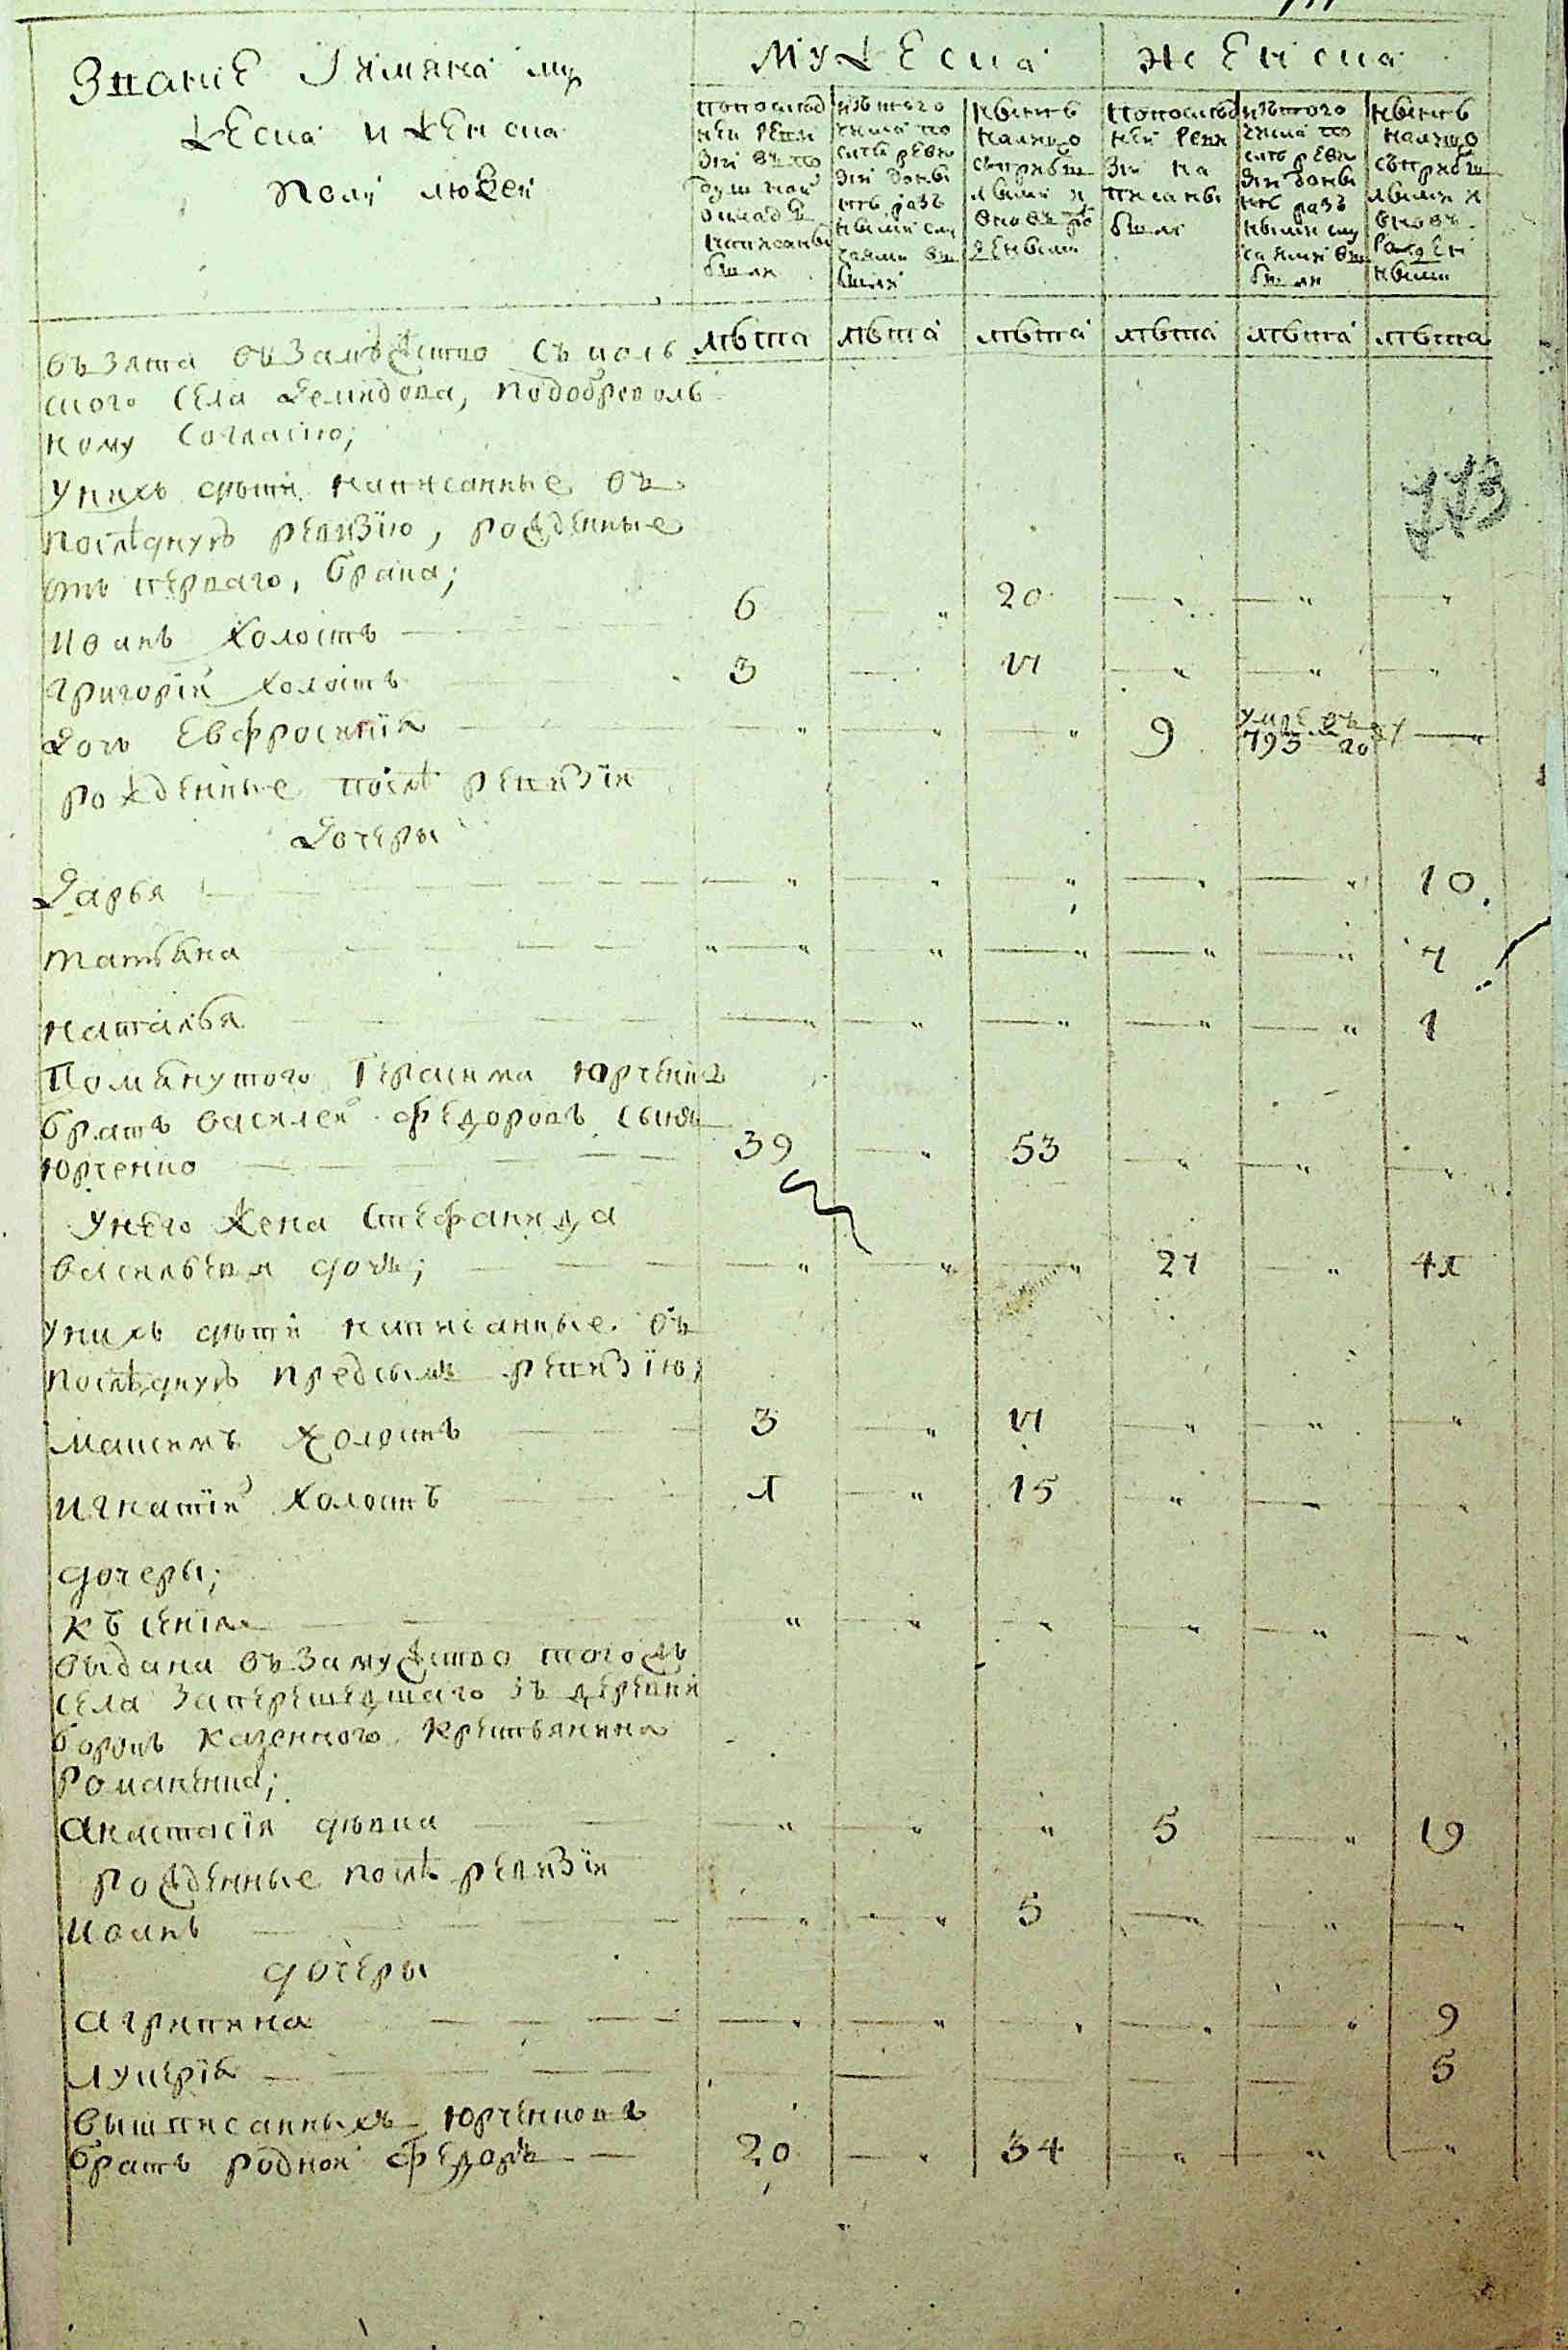 Знание Имяна му
жеска и женска
полу людей
Мужеска
Женска
попослѣд
ней реви
зіи въ по
душной
окладъ
написаны
были
изътого
числа по
слѣ реви
зіи до ны
нѣ разъ
ными слу
чаями вы
были
нынѣ
налицо
съприбы
лыми и
вновь ро
жденными
попослѣд
ней реви
зіи на
писаны
были
изътого
числа по
слѣ реви
зіи до ны
нѣ разъ
ными слу
чаями вы
были
нынѣ
налицо
съприбы
лыми и
вновь
рожден
ными
лѣта лѣта лѣта лѣта лѣта лѣта
въ Зята въ Замѣжство съ
ского села Демидова, по доброволь
ному согласію;
113
У нихъ дѣти написанные въ
послѣднуюъ ревизію, рожденные
отъ перваго, брака;
Иванъ холостъ 6 20
Григорій холостъ 3 17
Дочь Евфросинія 9 умре въ 793 20
рожденные послѣ ревизіи
Дочеры
Дарья 10
Татьяна 4
Наталья 1
Помянутого Герасима Юрченка
братъ Василей Федоровъ сынъ
Юрченко 39 53
У него жена Стефанида
Васильева дочь; 27 41
У нихъ дѣти написанные въ
послѣднуюъ предсимъ ревизію;
Максимъ холостъ 3 17
Игнатій холостъ 1 15
дочеры;
Къ сенія
выдана въ замужство тогожъ
села за перешедшаго зъ деревни
казенного крестьянина
Романенка;
Анастасія дѣвка 5 19
рожденные послѣ ревизіи
Иванъ 5
дочеры
Агрипина 9
Лукерія 5
вышписанныхъ Юрченковъ
братъ родной Федоръ 20 34